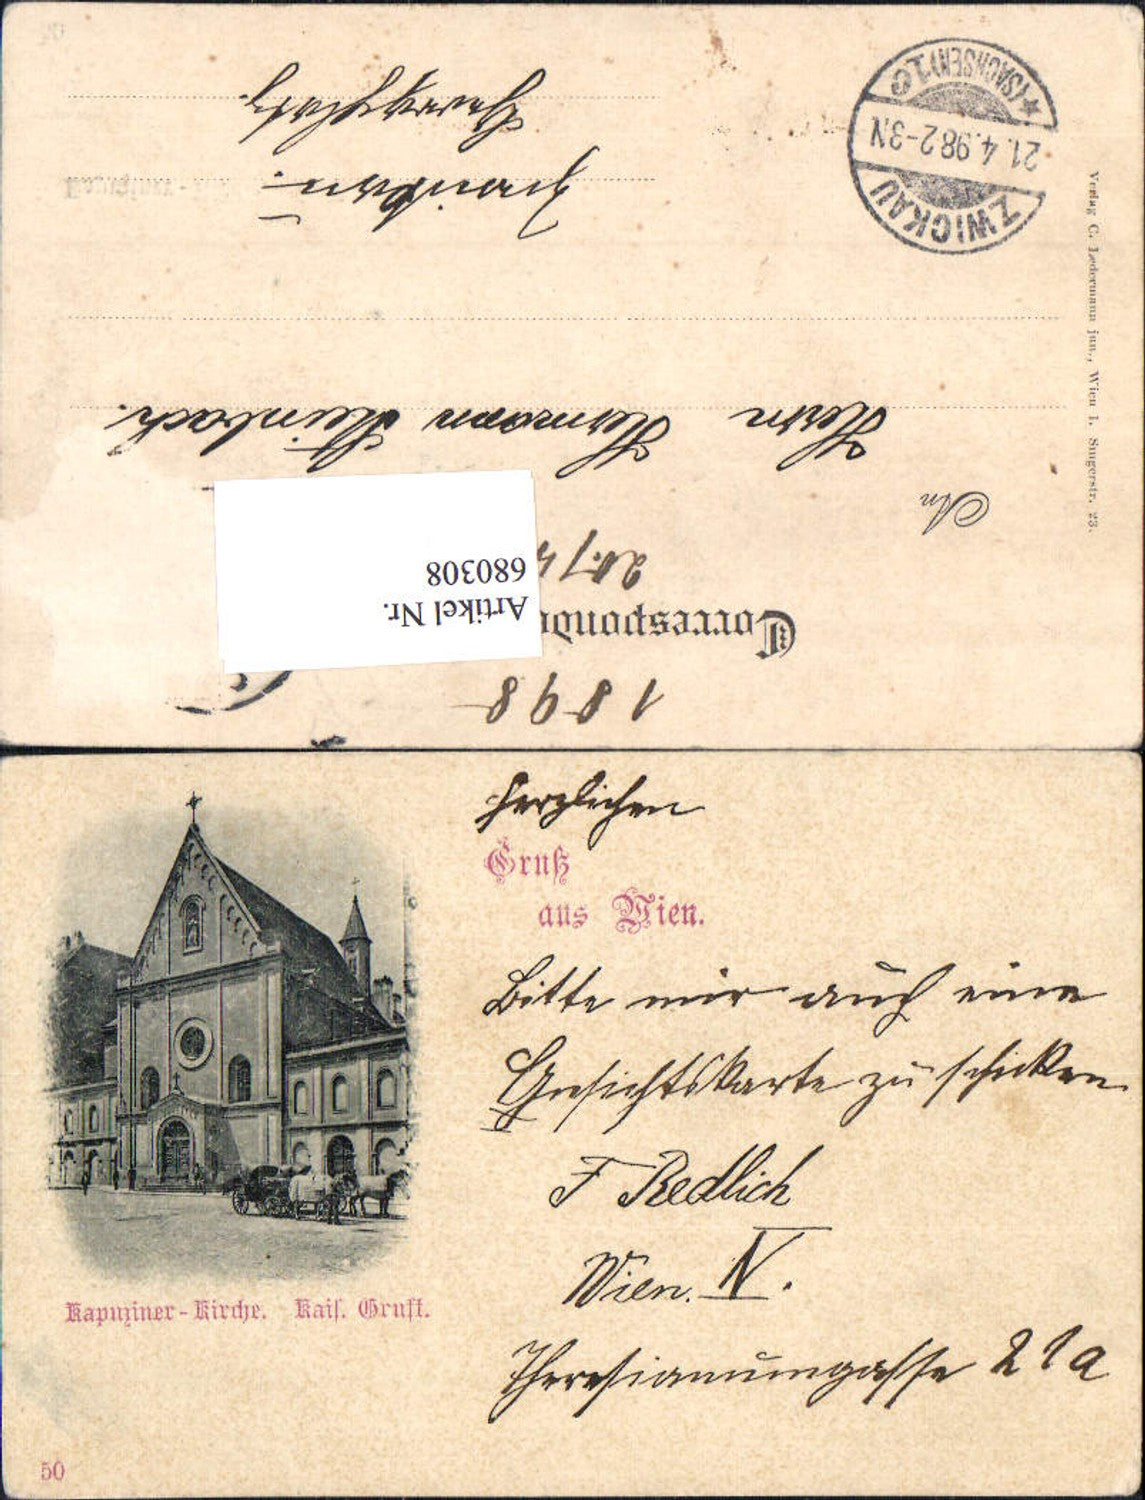 1898
Correspond
20/4
Artikel Nr.
680308
An
Herrn Hermann Steinbach.
Zwickau
ZWICKAU
21.4.98 2-3N
*(SACHSEN)1c
Verlag C. Ledermann jun., Wien I. Singerstr. 23.
Herzlichen
Gruß
aus Wien.
Bitte mir auch eine
Ansichtskarte zu schicken
F Redlich
Wien. IV.
Theresianumgasse 21a
Kapuziner-Kirche. Kais. Gruft.
50